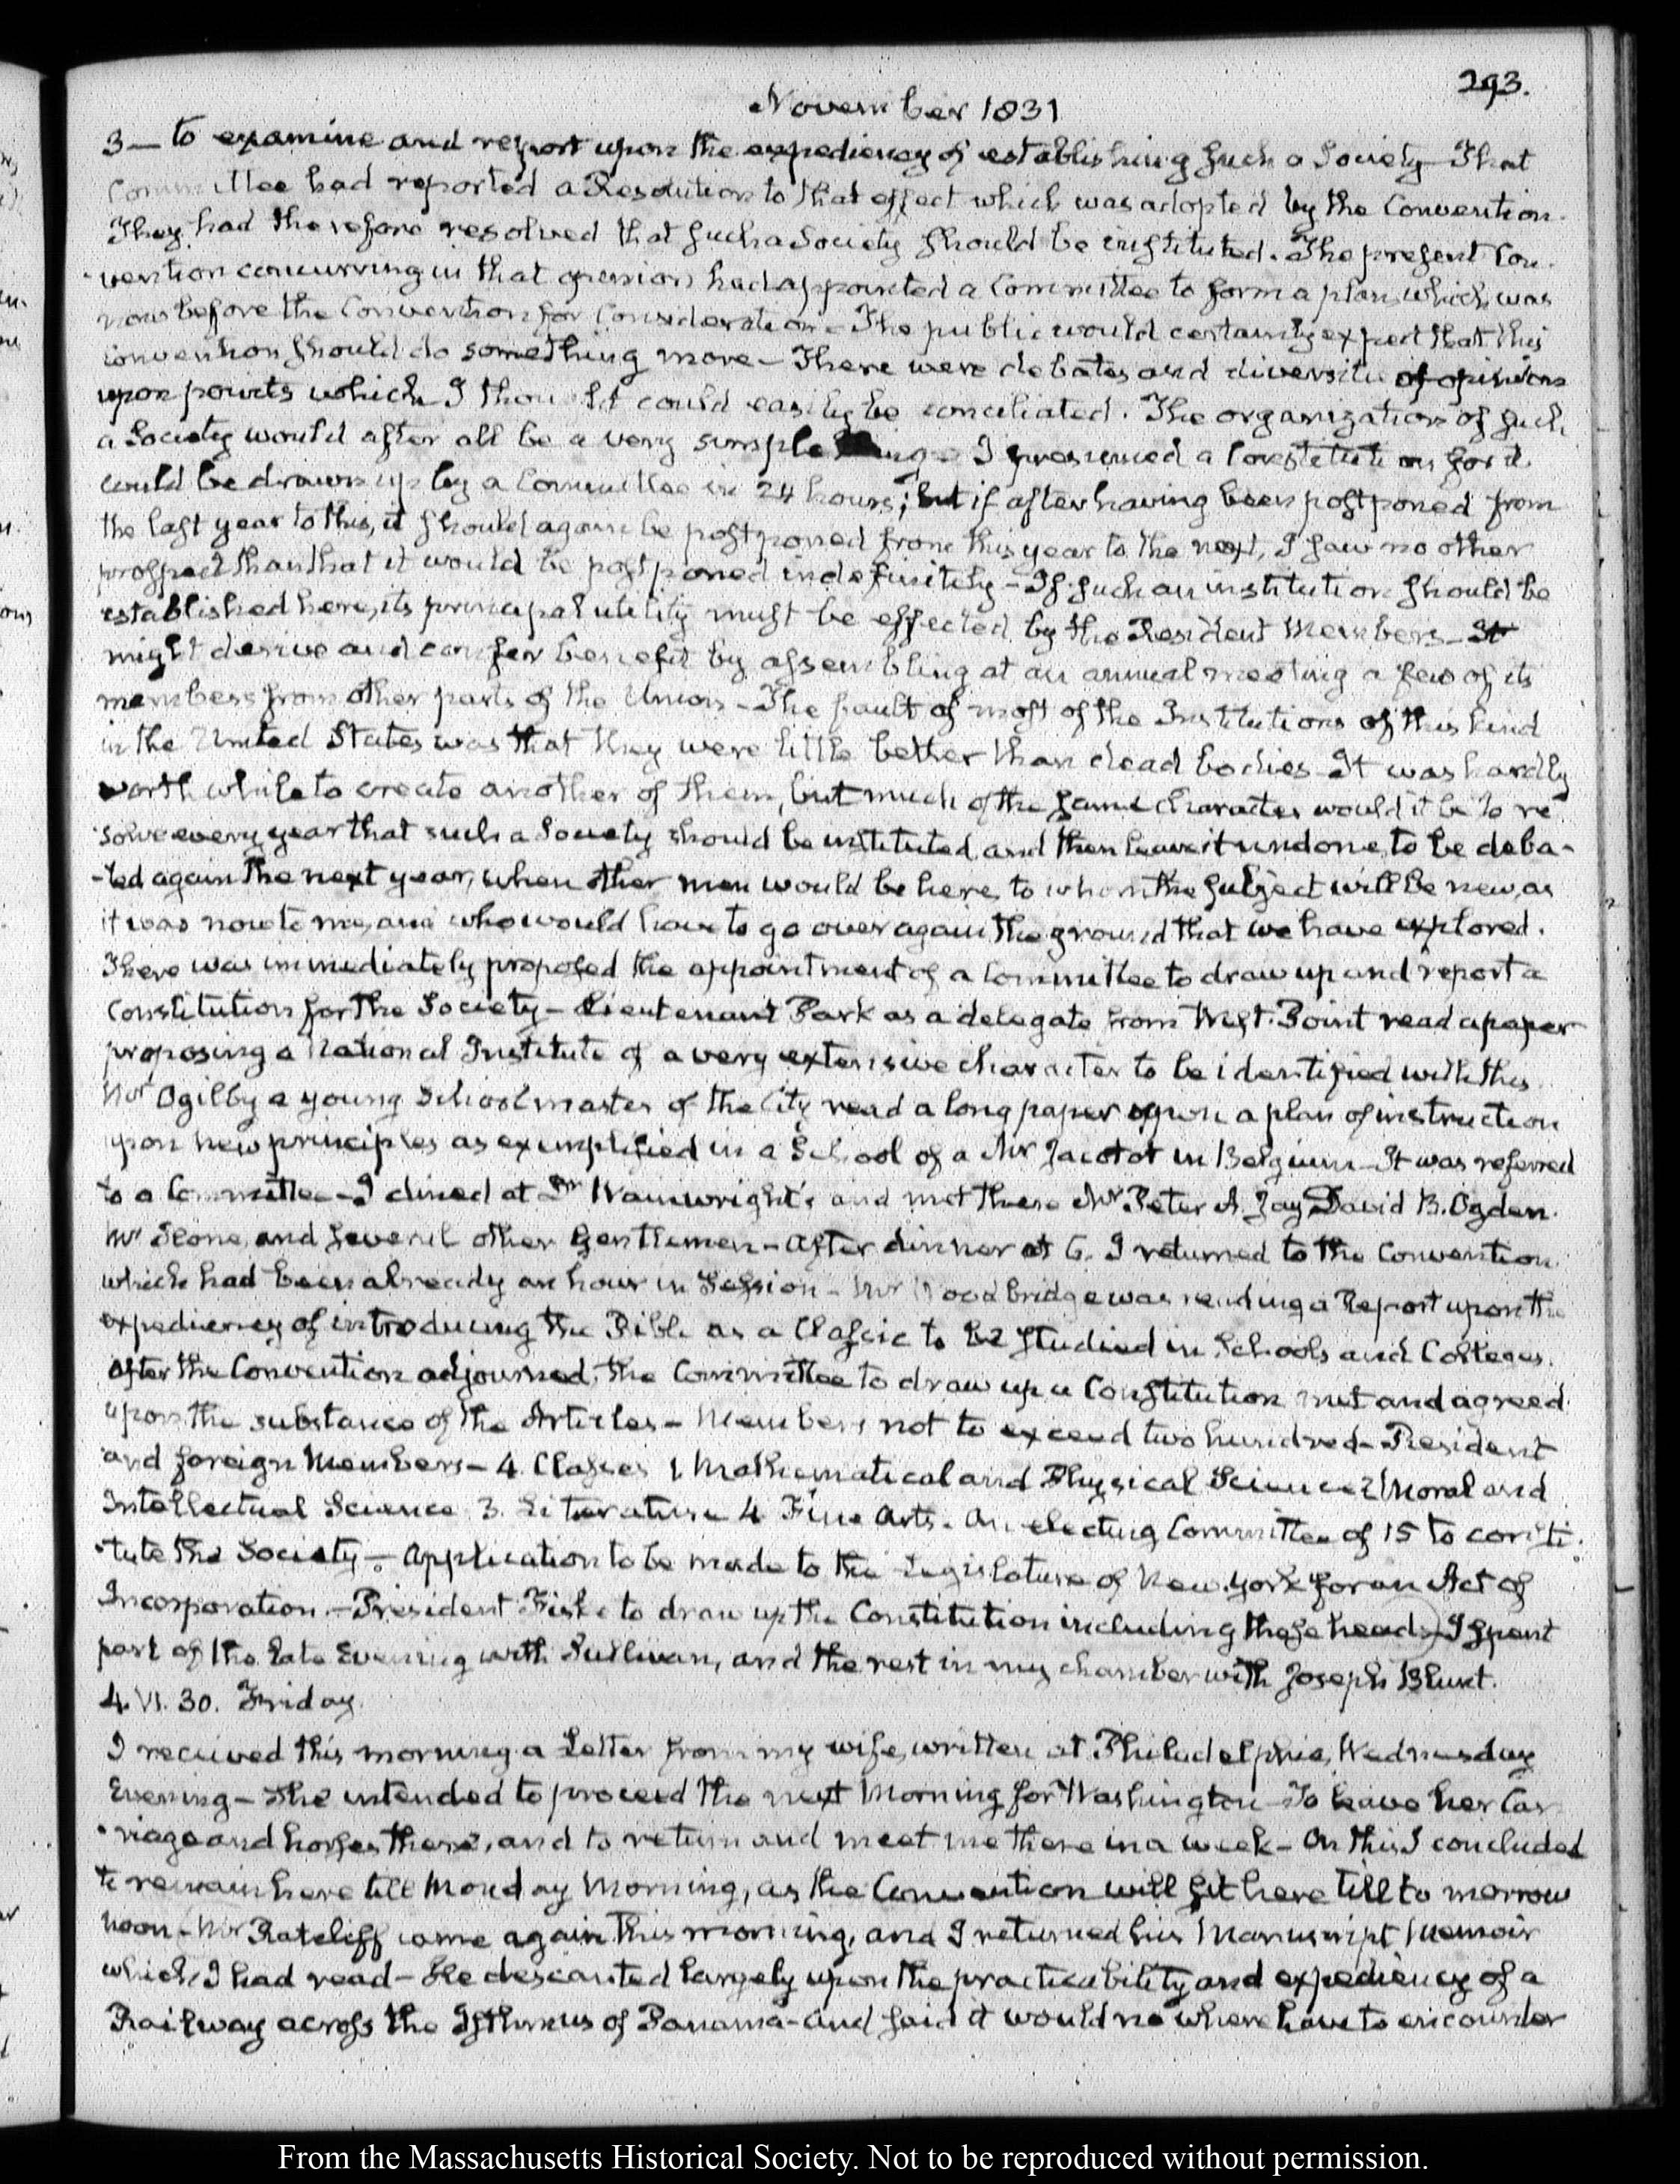 293.
November 1831
3— to examine and report upon the expediency of establishing such a Society— That
Committee had reported a Resolution to that effect which was adopted by the Convention.
They had therefore resolved that such a Society should be instituted. The present Con-
-vention concurring in that opinion had appointed a Committee to form a plan which was
now before the Convention for Consideration— The public would certainly expect that this
convention should do something more— There were debates and diversity of opinions
upon points which I thought could easily be conciliated. The organization of such
a Society would after all be a very simple thing— I presumed a Constitution for it
could be drawn up by a Committee in 24 hours; but if after having been postponed from
the last year to this, it should again be postponed from this year to the next, I saw no other
prospect than that it would be postponed indefinitely— If such an institution should be
established here, its principal utility must be effected by the Resident Members— It
might derive and confer benefit by assembling at an annual meeting a few of its
members from other parts of the Union— The fault of most of the Institutions of this kind
in the United States was that they were little better than dead bodies— It was hardly
worth while to create another of them, but much of the same character would it be to re-
solve every year that such a Society should be instituted, and then leave it undone, to be deba-
-ted again the next year, when other men would be here, to whom the subject will be new, as
it was now to me, and who would have to go over again the ground that we have explored.
There was immediately proposed the appointment of a Committee to draw up and report a
Constitution for the Society— Lieutenant Park as a delegate from West-Point read a paper
proposing a National Institute of a very extensive character to be identified with this.
Mr Ogilby a young Schoolmaster of the City read a long paper upon a plan of instruction
upon new principles as exemplified in a School of a Mr Jacotot in Belgium— It was referred
to a Committee— I dined at Dr Wainwright's and met there Mr Peter A. Jay, David B. Ogden.
Mr Stone, and several other Gentlemen— After dinner at 6. I returned to the Convention
which had been already an hour in Session— Mr Woodbridge was reading a Report upon the
expediency of introducing the Bible as a Classic to be studied in Schools and Colleges.
After the Convention adjourned, the Committee to draw up a Constitution met and agreed
upon the substance of the Articles— Members not to exceed two hundred— Resident
and foreign Members— 4 Classes 1 Mathematical and Physical Science 2 Moral and
Intellectual Science 3. Literature 4 Fine Arts. An electing Committee of 15 to consti-
-tute the Society— Application to be made to the Legislature of New-York for an Act of
Incorporation.— President Fiske to draw up the Constitution including these heads— I spent
part of the late Evening with Sullivan, and the rest in my chamber with Joseph Blunt.
4. VI. 30. Friday.
I received this morning a Letter from my wife, written at Philadelphia, Wednesday
Evening— She intended to proceed the next Morning for Washington— To leave her Car-
-riage and horses there, and to return and meet me there in a week— On this I concluded
to remain here till Monday Morning, as the Convention will sit here till to morrow
noon— Mr Ratcliff came again this morning, and I returned his Manuscript Memoir
which I had read— He descanted largely upon the practicability and expediency of a
Railway across the Isthmus of Panama— and said it would no where have to encounter
From the Massachusetts Historical Society. Not to be reproduced without permission.